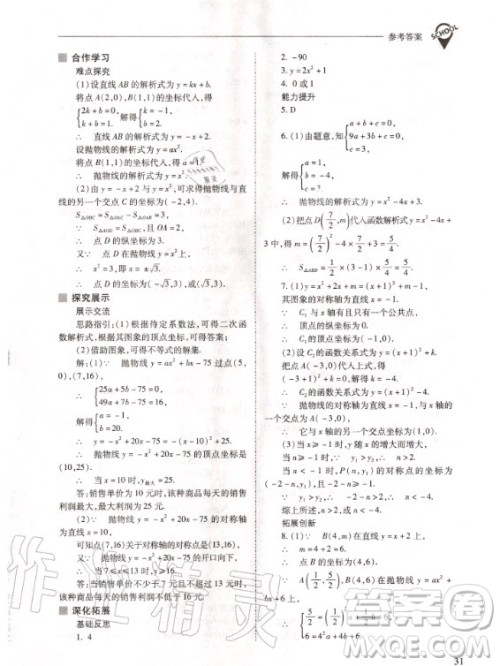 参考答案
SCHOOL
合作学习
难点探究
(1)设直线 AB 的解析式为 y=kx+b.
将点 A(2,0)、B(1,1)的坐标代入,得
{2k+b=0, k+b=1. 解得{k=-1, b=2.
∴ 直线 AB 的解析式为 y=-x+2.
设抛物线的解析式为 y=ax².
将点 B(1,1)的坐标代入,得 a=1.
∴ 抛物线的解析式为 y=x².
(2)由 y=-x+2 与 y=x²
另一个交点 C 的坐标为(-2,4).
∴ S△OBC=S△AOC-S△OAB=3.
∵ S△AOD=S△OBC=3,且 OA=2.
∴ 点 D 的纵坐标为 3.
又∵ 点 D 在抛物线 y=x² 上,
∴ x²=3,即 x=±√3.
∴ 点 D 的坐标为(-√3,3)或(√3,3).
探究展示
展示交流
思路指引:(1)根据待定系数法,可得二次函数解析式,根据其图象的顶点坐标,可得答案;
(2)借助图象,可得不等式的解集.
解:(1)∵ 抛物线 y=ax²+bx-75 过点(5,0)、(7,16),
∴ {25a+5b-75=0, 49a+7b-75=16.
解得{a=-1, b=20.
∴ y=-x²+20x-75=-(x-10)²+25.
∴ 抛物线 y=-x²+20x-75 的顶点坐标为(10,25).
∵ -1<0,
∴ 当 x=10 时,y最大=25.
答:销售单价为 10 元时,该种商品每天的销售利润最大,最大利润为 25 元.
(2)∵ 抛物线 y=-x²+20x-75 的对称轴为直线 x=10,
可知点(7,16)关于对称轴的对称点是(13,16).
又∵ 抛物线 y=-x²+20x-75 的开口向下,
∴ 当 7≤x≤13 时,y≥16.
答:销售单价不少于 7 元且不超过 13 元时,该种商品每天的销售利润不低于 16 元.
深化拓展
基础反思
1. 4
2. -90
3. y=2x²+1
4. 0 或 1
能力提升
5. D
6. (1)由题意,知{a+b+c=0, 9a+3b+c=0, c=3.
解得{a=1, b=-4, c=3.
∴ 抛物线的解析式为 y=x²-4x+3.
(2)把点 D(7/2,m)代入函数解析式 y=x²-4x+3 中,得 m=(7/2)²-4×7/2+3=5/4.
∴ S△ABD=1/2×(3-1)×5/4=5/4.
7. (1)∵ y=x²+2x+m=(x+1)²+m-1,
其图象的对称轴为直线 x=-1.
∵ C₁ 与 x 轴有且只有一个公共点,
∴ 顶点的纵坐标为 0.
∴ C₁ 的顶点坐标为(-1,0).
(2)设 C₂ 的函数关系式为 y=(x+1)²+k.
把点 A(-3,0)代入上式,得
(-3+1)²+k=0,得 k=-4.
∴ C₂ 的函数关系式为 y=(x+1)²-4.
∵ 抛物线的对称轴为直线 x=-1,与 x 轴的一个交点为 A(-3,0),
∴ 它与 x 轴的另一个交点坐标为(1,0).
(3)当 x≥-1 时,y 随 x 的增大而增大,
当 n≥-1 时,∵ y₁>y₂,∴ n>2.
当 n<-1 时,P(n,y₁)的对称点的坐标为(-2-n,y₁),且-2-n>-1,
∵ y₁>y₂,∴ -2-n>2.∴ n<-4.
综上所述,n>2 或 n<-4.
拓展创新
8. (1)∵ B(4,m)在直线 y=x+2 上,
∴ m=4+2=6.
∴ 点 B 的坐标为(4,6).
∵ A(1/2,5/2)、B(4,6)在抛物线 y=ax²+bx+6 上,
31
作业精灵